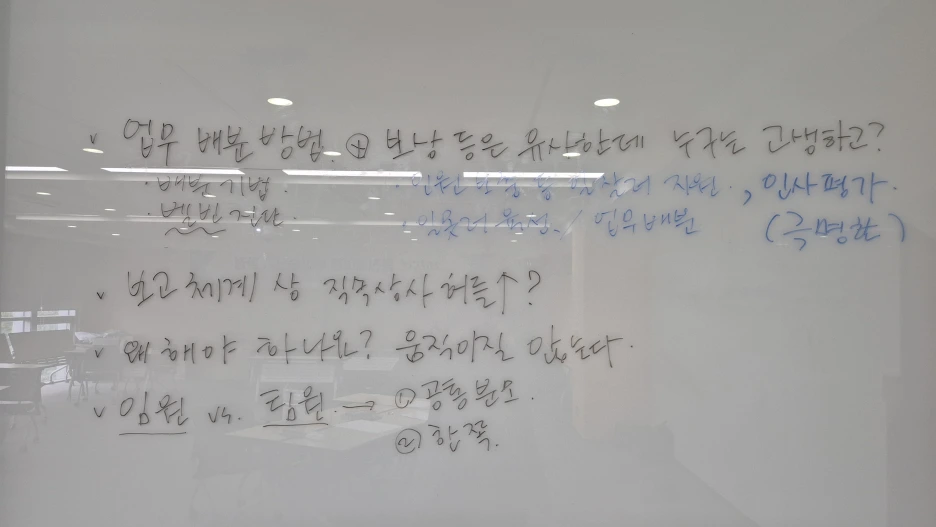 v 업무 배분 방법. ⊕ 보상 등은 유사한데 누구는 고생하고?
· 배분 기법. · 인원 보충 등 현실적 지원., 인사평가.
· 벨빈 진단. · 업무배분 (극명한)
v 보고체계 상 직속상사 허들↑?
v 왜 해야 하나요? 움직이질 않는다.
v 임원 vs. 팀원. → ① 공통분모.
② 한쪽.